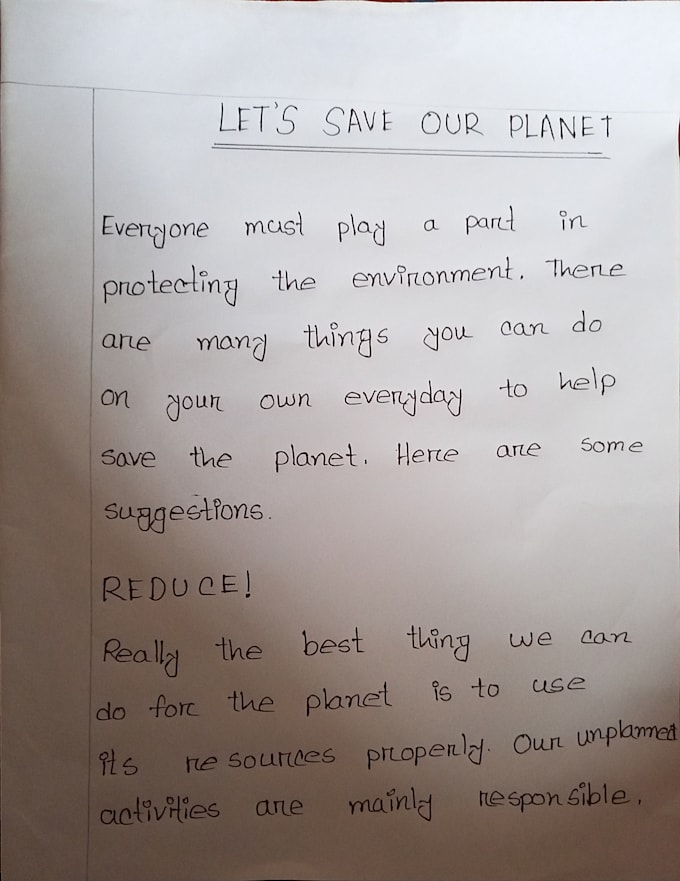 LET'S SAVE OUR PLANET
Everyone must play a part in
protecting the environment. There
are many things you can do
on your own everyday to help
save the planet. Here are some
suggestions.
REDUCE!
Really the best thing we can
do for the planet is to use
its resources properly. Our unplanned
activities are mainly responsible.